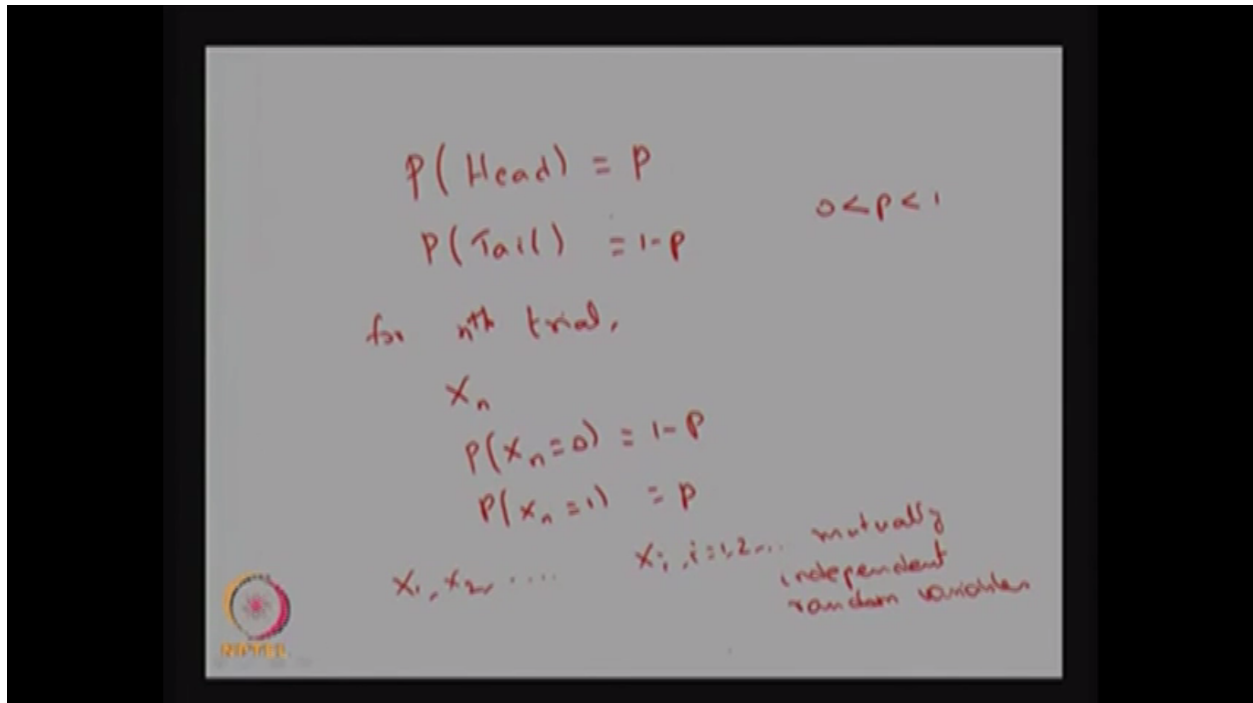 P(Head) = P
0 < p < 1
P(Tail) = 1-p
for nth trial,
Xn
P(Xn=0) = 1-P
P(Xn=1) = P
X1, X2, .... Xi, i=1,2... mutually
independent
random variables
NPTEL